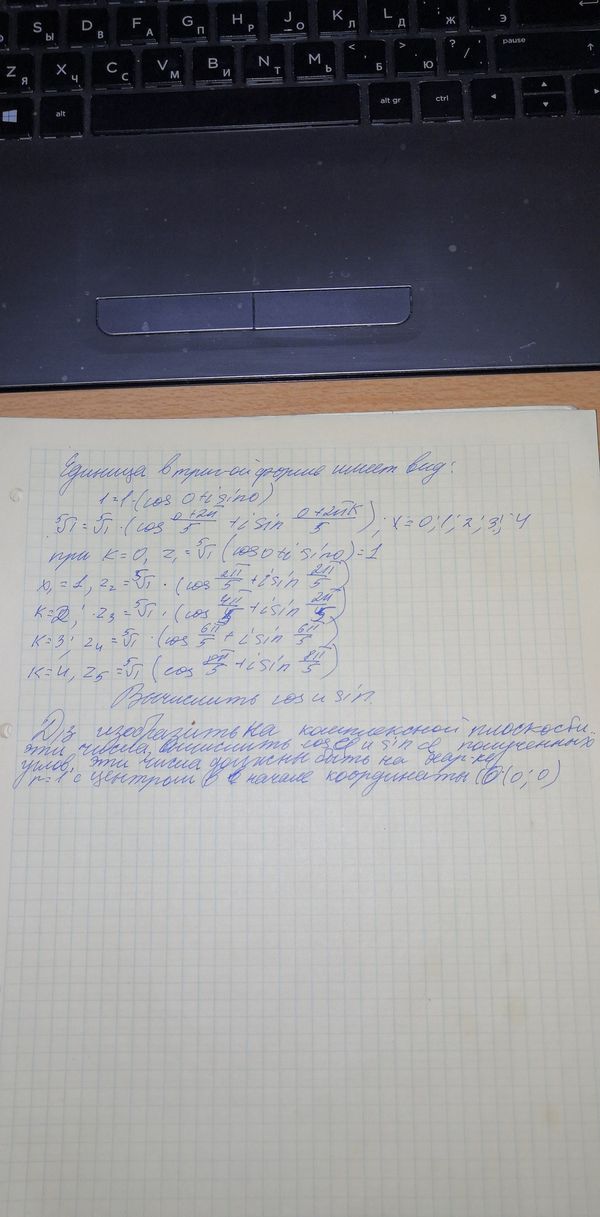 S Ы D В F А G П H Р J О K Л L Д : ; Ж " ' Э
Z Я X Ч C С V М B И N Т M Ь < , Б > . Ю ? / . pause
alt alt gr ctrl
Единица в триг-ой форме имеет вид:
1=1·(cos 0+i sin 0)
⁵√1=⁵√1·(cos (0+2π)/5 + i sin (0+2πк)/5); к=0; 1; 2; 3; 4
при к=0, z₁=⁵√1 (cos 0+i sin 0)=1
=1, z₂=⁵√1·(cos 2π/5 + i sin 2π/5)
к=2; z₃=⁵√1·(cos 4π/5 + i sin 2π/5)
к=3; z₄=⁵√1·(cos 6π/5 + i sin 6π/5)
к=4, z₅=⁵√1 (cos 8π/5 + i sin 8π/5)
Вычислить cos и sin
Дз изобразить на комплексной плоскости
эти числа, вычислить cos и sin полученных
углов, эти числа должны быть на
r=1 с центром в начале координаты (0;0)